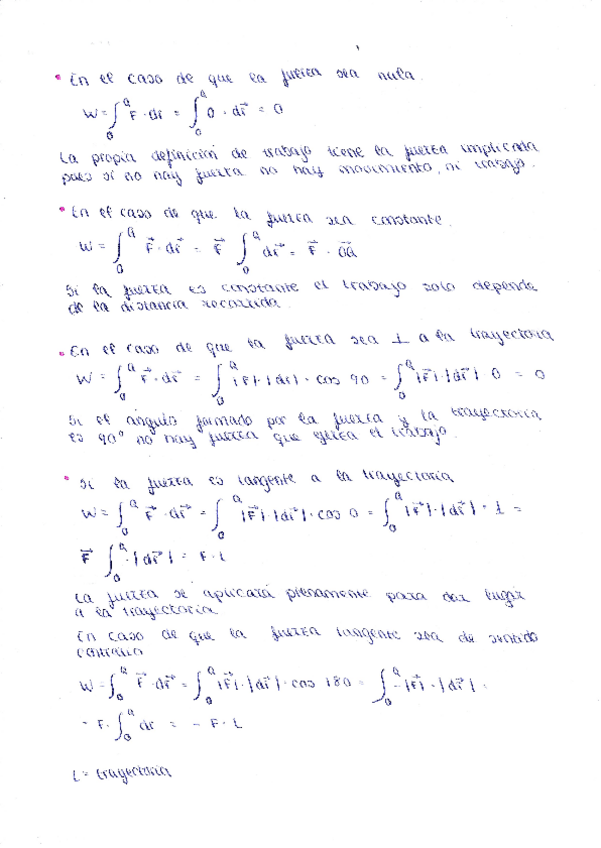 • En el caso de que la fuerza sea nula.
W = ∫₀^Q F · dr = ∫₀^Q 0 · dr⃗ = 0
La propia definición de trabajo tiene la fuerza implicada
pues si no hay fuerza no hay movimiento, ni trabajo.
• En el caso de que la fuerza sea constante.
W = ∫₀^Q F⃗ · dr⃗ = F⃗ ∫₀^Q dr⃗ = F⃗ · OQ
Si la fuerza es constante el trabajo solo depende
de la distancia recorrida.
• En el caso de que la fuerza sea ⊥ a la trayectora
W = ∫₀^Q F⃗ · dr⃗ = ∫₀^Q |F| · |dr| · cos 90 = ∫₀^Q |F⃗| · |dr⃗| 0 = 0
Si el ángulo formado por la fuerza y la trayectoria
es 90° no hay fuerza que ejerza el trabajo.
• Si la fuerza es tangente a la trayectoria
W = ∫₀^Q F⃗ · dr⃗ = ∫₀^Q |F⃗| · |dr⃗| · cos 0 = ∫₀^Q |F⃗| · |dr⃗| · 1 =
F⃗ ∫₀^Q · |dr⃗| = F · L
La fuerza se aplicará plenamente para dar lugar
a la trayectoria
En caso de que la fuerza tangente sea de sentido
contrario
W = ∫₀^Q F⃗ · dr⃗ = ∫₀^Q |F⃗| · |dr⃗| · cos 180 = ∫₀^Q -|F⃗| · |dr⃗| =
- F · ∫₀^Q dr = - F · L
L = trayectoria